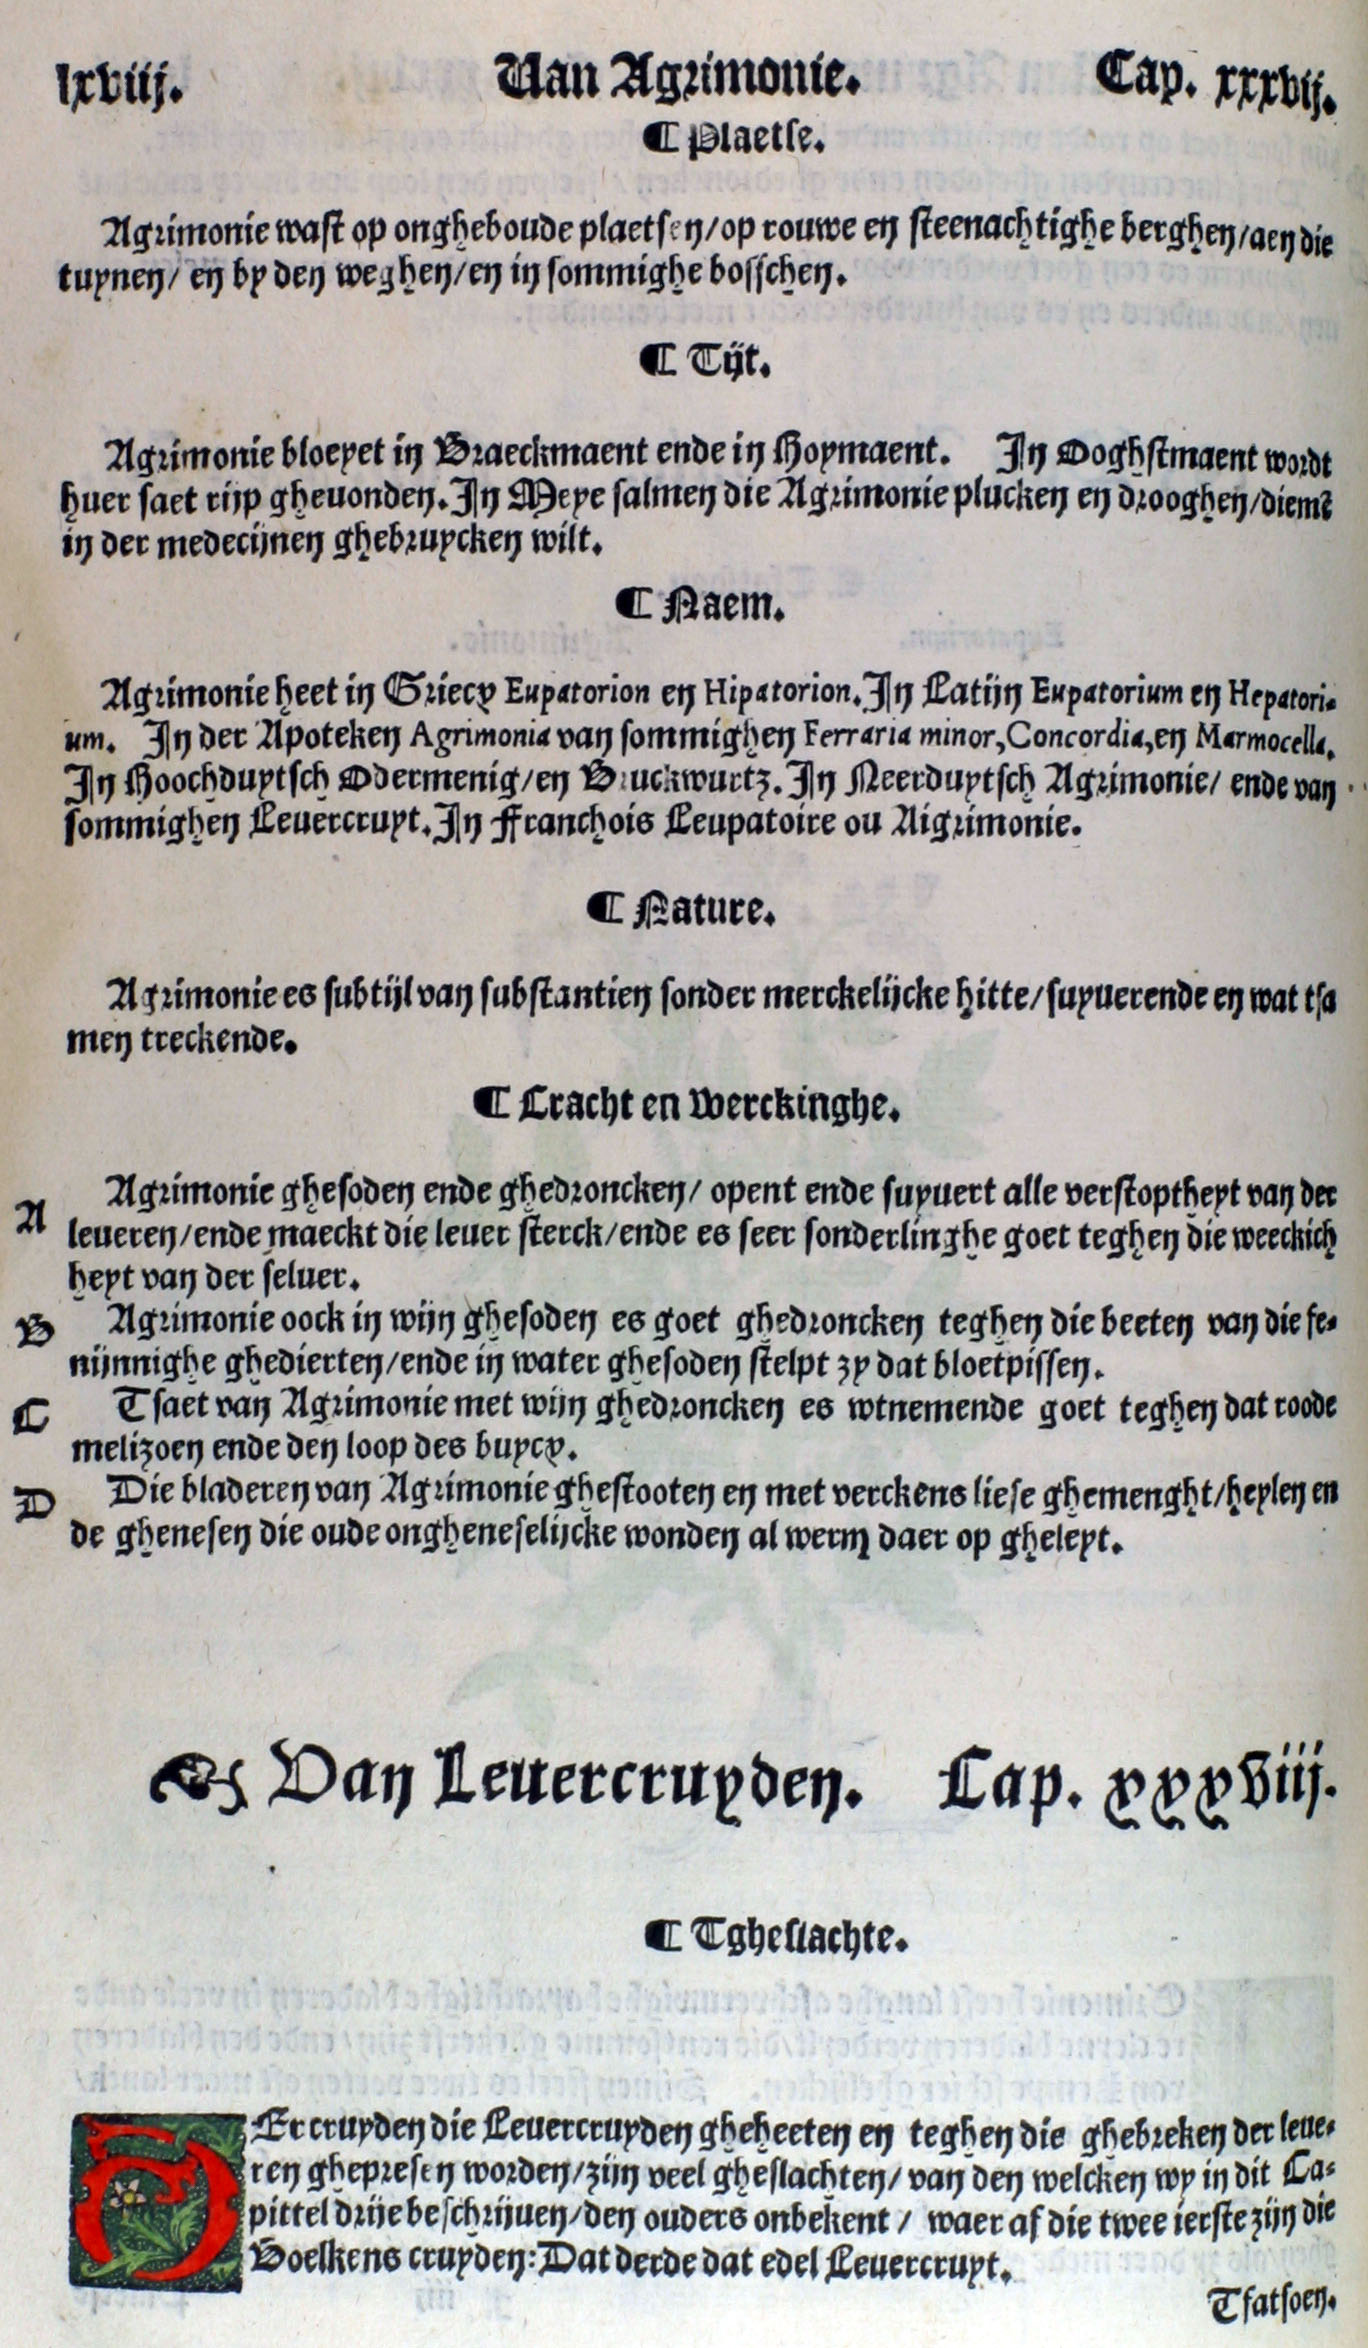 lxviij. Van Agrimonie. Cap. xxxvij.
¶ Plaetse.
Agrimonie wast op ongheboude plaetsen/op rouwe en steenachtighe berghen/aen die
tuynen/ en by den weghen/en in sommighe bosschen.
¶ Tijt.
Agrimonie bloeyet in Braeckmaent ende in Hoymaent. In Ooghstmaent wordt
huer saet rijp gheuonden. In Meye salmen die Agrimonie plucken en drooghen/diemē
in der medecijnen ghebruycken wilt.
¶ Naem.
Agrimonie heet in Griecx Eupatorion en Hipatorion. In Latijn Eupatorium en Hepatori-
um. In der Apoteken Agrimonia van sommighen Ferraria minor, Concordia, en Marmocella.
In Hoochduytsch Odermenig/en Bruckwurtz. In Neerduytsch Agrimonie/ ende van
sommighen Leuercruyt. In Franchois Leupatoire ou Aigrimonie.
¶ Nature.
Agrimonie es subtijl van substantien sonder merckelijcke hitte/suyuerende en wat tsa
men treckende.
¶ Cracht en Werckinghe.
Agrimonie ghesoden ende ghedroncken/ opent ende suyuert alle verstoptheyt van der
A leueren/ende maeckt die leuer sterck/ende es seer sonderlinghe goet teghen die weeckich
heyt van der seluer.
B Agrimonie oock in wijn ghesoden es goet ghedroncken teghen die beeten van die fe-
nijnnighe ghedierten/ende in water ghesoden stelpt zy dat bloetpissen.
C Tsaet van Agrimonie met wijn ghedroncken es wtnemende goet teghen dat roode
melizoen ende den loop des buycx.
D Die bladeren van Agrimonie ghestooten en met verckens liese ghemenght/heylen en
de ghenesen die oude ongheneselijcke wonden al werm daer op gheleyt.
Van Leuercruyden. Cap. xxxviij.
¶ Tgheslachte.
DEr cruyden die Leuercruyden gheheeten en teghen die ghebreken der leue-
ren ghepresen worden/zijn veel gheslachten/ van den welcken wy in dit Ca-
pittel drije beschrijuen/den ouders onbekent / waer af die twee ierste zijn die
Boelkens cruyden: Dat derde dat edel Leuercruyt.
Tfatsoen.